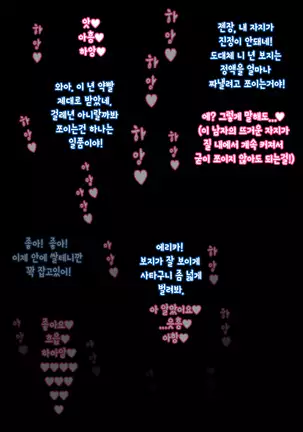 앗♥
아흥♥
하앙♥
젠장, 내 자지가
진정이 안돼네!
도대체 니 년 보지는
정액을 얼마나
짜낼려고 쪼이는거야!
와아, 이 년 약빨
제대로 받았네,
걸레년 아니랄까봐
쪼이는건 하나는
일품이야!
에? 그렇게 말해도...♥
(이 남자의 뜨거운 자지가
질 내에서 계속 커져서
굳이 쪼이지 않아도 되는걸!)
하앙♥
하앙♥
하앙♥
하앙♥
좋아! 좋아!
이제 안에 쌀테니깐
꽉 잡고있어!
에리카!
보지가 잘 보이게
사타구니 좀 넓게
벌려봐.
하앙♥
하앙♥
아 알았어요♥
...읏흥♥
아항♥
좋아요♥
흐읍♥
하아앙♥
♥♥♥♥
♥♥♥
♥♥
♥
하앙♥
하앙♥
하앙♥